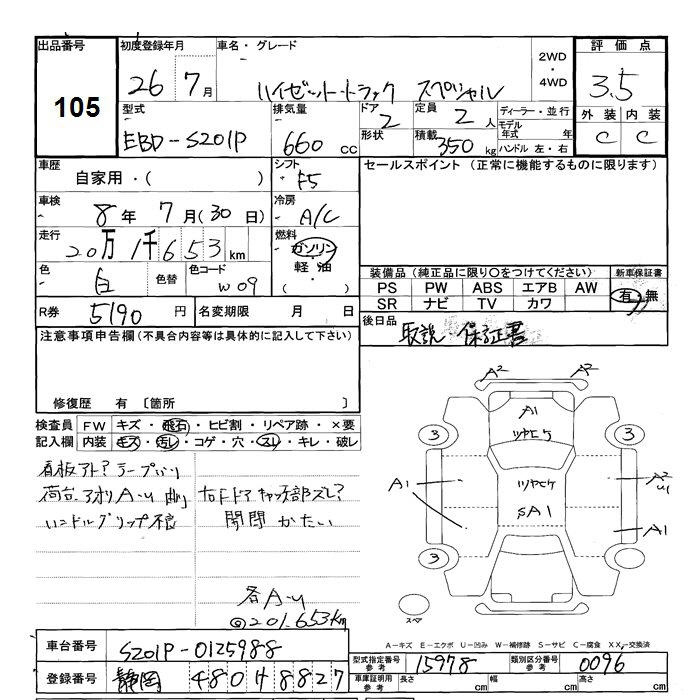 出品番号 初度登録年月 車名・グレード 2WD ・ 4WD 評価点
105 26 7月 ハイゼットトラック スペシャル 3.5
型式 排気量 ドア 定員 ディーラー・並行 外装 内装
EBD-S201P 660cc 2 2人 モデル年式 年 C C
形状 積載 350kg ハンドル 左・右
車歴 シフト セールスポイント (正常に機能するものに限ります)
自家用・( ) F5
車検 冷房
8年 7月(30日) A/C
走行 燃料
20万1千653km ガソリン
軽油
( ・ )
色 白 色替 色コード W09 装備品(純正品に限り○をつけてください) 新車保証書
PS PW ABS エアB AW 有・無
SR ナビ TV カワ
R券 5190円 名変期限 月 日 後日品 取説・保証書
注意事項申告欄(不具合内容等は具体的に記入して下さい)
修復歴 有 〔箇所 〕
検査員 FW キズ・飛石・ヒビ割・リペア跡・×要
記入欄 内装 キズ・汚レ・コゲ・穴・スレ・キレ・破レ
看板アト?
荷台アオリA-U曲
ハンドルグリップ不良
右Fドアキャッチ部ズレ?
開閉かたい
各A-U
@201.653km
A2 A2
A1
ツヤヒケ
3 3
A1 ツヤヒケ A2
U1
SA1 A1
3
スペア
A-キズ E-エクボ U-凹み W-補修跡 S-サビ C-腐食 XX-交換済
車台番号 S201P-0125988
型式指定番号 参考 15978 類別区分番号 参考 0096
登録番号 静岡 480 サ 8827
車庫証明用 参考 長さ cm 幅 cm 高さ cm